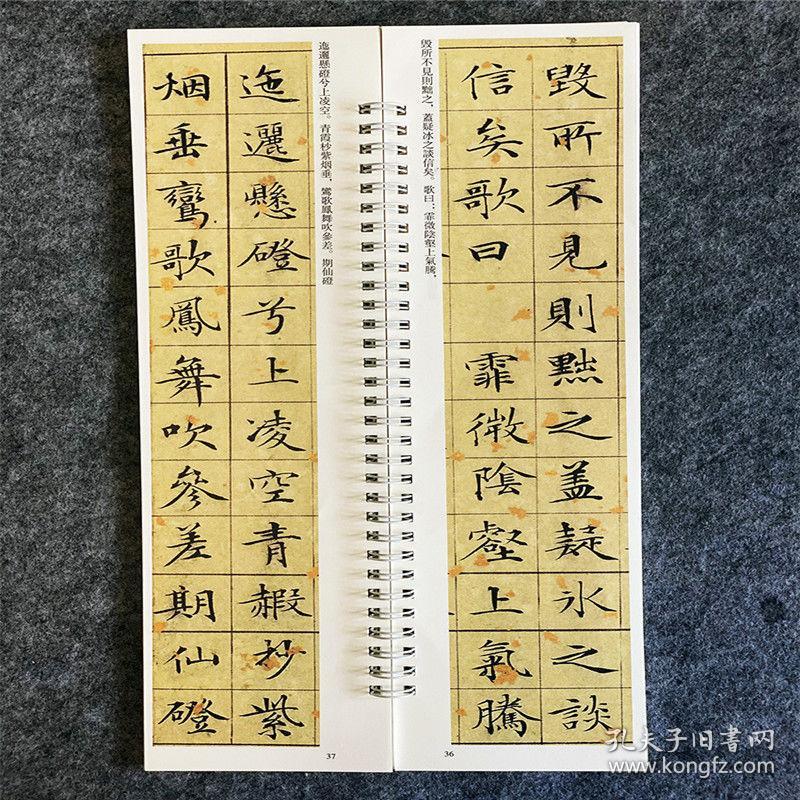 毀所不見則黜之盖疑氷之談
信矣歌曰 霏微陰壑上氣騰
毀所不見則黜之，蓋疑冰之談信矣。歌曰：霏微陰壑上氣騰，
36
迤邐懸磴兮上凌空青赮杪紫
烟垂鸞歌鳳舞吹參差期仙磴
迤邐懸磴兮上凌空。青霞杪紫烟垂，鸞歌鳳舞吹參差。期仙磴
37
孔夫子旧書网
www.kongfz.com